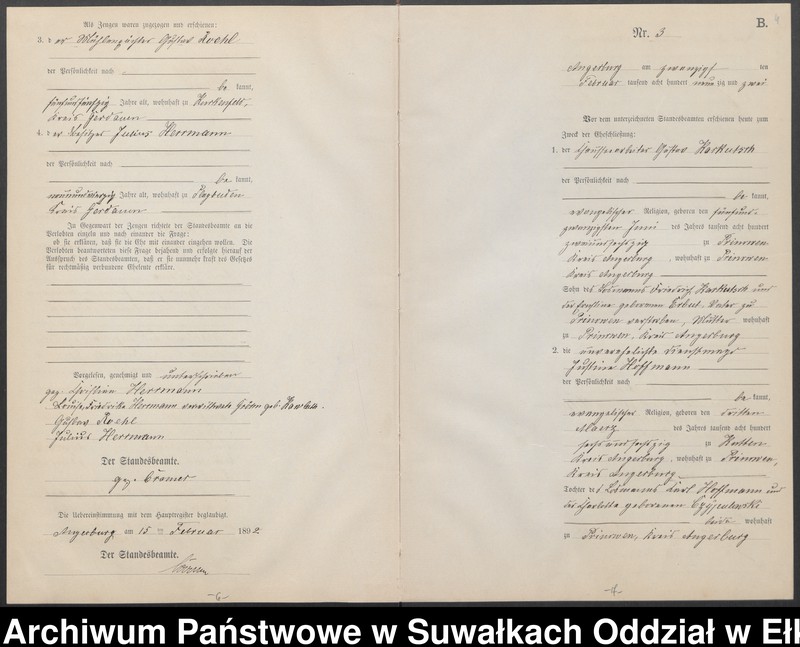 Als Zeugen waren zugezogen und erschienen:
3. der Mühlenpächter Gustav Roehl
der Persönlichkeit nach
be kannt,
fünfundfünfzig Jahre alt, wohnhaft zu
Kreis Gerdauen
4. der Besitzer Julius Herrmann
der Persönlichkeit nach
be kannt,
Jahre alt, wohnhaft zu
Kreis Gerdauen
In Gegenwart der Zeugen richtete der Standesbeamte an die
Verlobten einzeln und nach einander die Frage:
ob sie erklären, daß sie die Ehe mit einander eingehen wollen. Die
Verlobten beantworteten diese Frage bejahend und erfolgte hierauf der
Ausspruch des Standesbeamten, daß er sie nunmehr kraft des Gesetzes
für rechtmäßig verbundene Eheleute erkläre.
Vorgelesen, genehmigt und unterschrieben
gez. Christian Herrmann
Louise Friedricke Herrmann verwittwete geb.
Gustav Roehl
Julius Herrmann
Der Standesbeamte.
gez. Cramer
Die Uebereinstimmung mit dem Hauptregister beglaubigt.
Angerburg am 15 ten Februar 1892
Der Standesbeamte.
-6-
B.
4
Nr. 3
Angerburg am zwanzigsten
Februar tausend acht hundert neunzig und zwei
Vor dem unterzeichneten Standesbeamten erschienen heute zum
Zweck der Eheschließung:
1. der Gustav Karkutsch
der Persönlichkeit nach
be kannt,
evangelischer Religion, geboren den fünfund-
zwanzigsten Juni des Jahres tausend acht hundert
zweiundsechszig zu Prinowen
Kreis Angerburg, wohnhaft zu Prinowen
Kreis Angerburg
Sohn des Losmanns Friedrich Karkutsch und
der geborenen Vater zu
Prinowen verstorben, Mutter wohnhaft
zu Prinowen, Kreis Angerburg
2. die unverehelichte Dienstmagd
Justine Hoffmann
der Persönlichkeit nach
be kannt,
evangelischer Religion, geboren den dritten
Maerz des Jahres tausend acht hundert
sechsundsechszig zu Kutten
Kreis Angerburg, wohnhaft zu Prinowen,
Kreis Angerburg
Tochter des Losmanns Karl Hoffmann und
der Charlotte geborenen
beide wohnhaft
zu Prinowen, Kreis Angerburg
-4-
Archiwum Państwowe w Suwałkach Oddział w Ełk